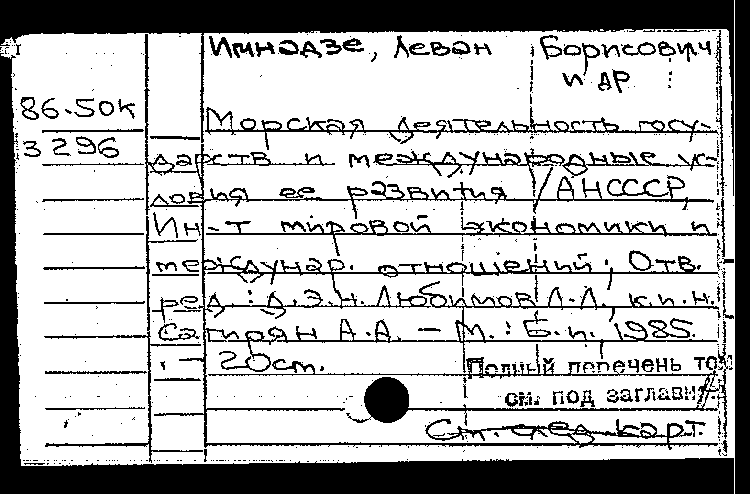 Имнадзе, Леван Борисович
и др
86.50к
3296
Морская деятельность госу-
дарств и международные ус-
ловия ее развития /АНСССР,
Ин-т мировой экономики и
междунар. отношений; Отв.
ред.: д.э.н. Любимов Л.Л., к.и.н.
Сагирян А.А. – М.: Б.и., 1985.
– 20см.
Полный перечень том
см. под заглави
См. след. карт.